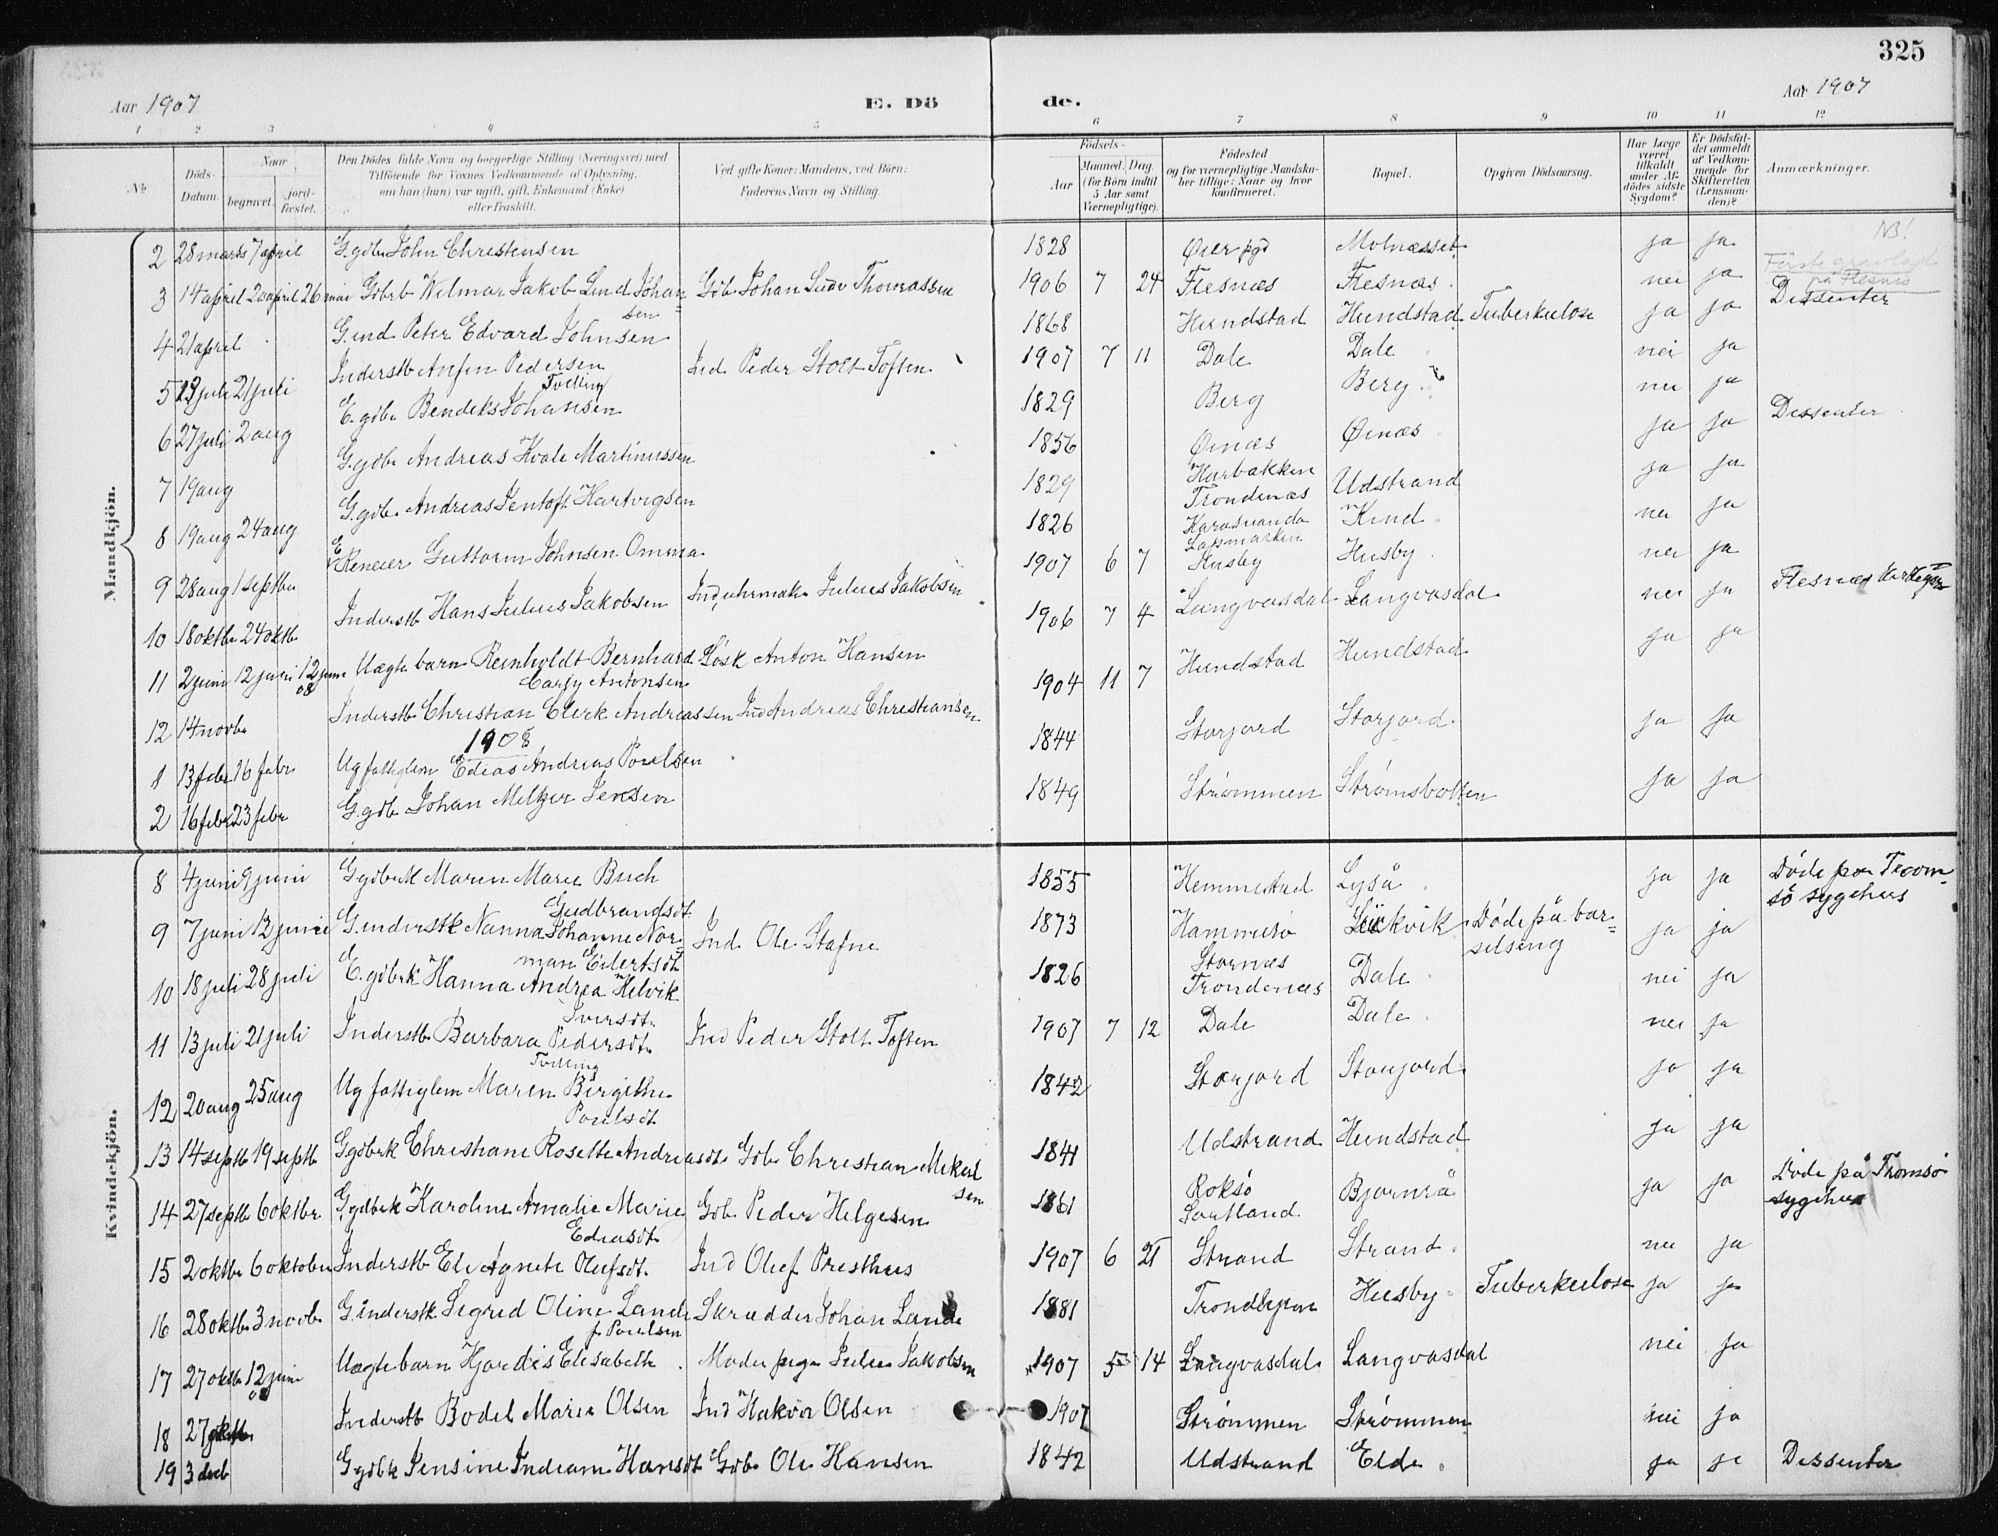 325
Aar 1907 E. Dö de. Aar 1907
1 2 3 4 5 6 7 8 9 10 11 12
No
Döds-Datum.
Naar
begravet.
jord-fæstet.
Den Dödes fulde Navn og borgerlige Stilling (Næringsvei) med
Tilföiende for Voxnes Vedkommende af Oplysning,
om han (hun) var ugift, gift, Enkemand (Enke)
eller fraskilt.
Ved gifte Koner: Mandens, ved Börn:
Faderens Navn og Stilling
Födsels-
Aar
Maaned. Dag.
(for Börn indtil
5 Aar samt
Værnepligtige).
Födested
og for værnepligtige Mandska-
ber tillige: Naar og hvor
konfirmeret.
Bopæl.
Opgiven Dödsaarsag.
Har Læge
været
tilkaldt
under Af-
dödes sidste
Sygdom?
Er Dödsfal-
det anmeldt
af Vedkom-
mende for
Skifteretten
(Lensman-
den)?
Anmærkninger.
Mandkjön.
2 28 marts 7 april G. gdbr John Christensen 1828 Øier pgd ja ja NB!
3 14 april 20 april 26 mai Gdbrb Wilmar Jakob Lind Johan-sen Gdb Johan Ludv Thomassen 1906 7 24 Flesnæs Flesnæs nei ja Første gravlagt på Flesnes
4 21 april G. ind Peter Edvard Johnsen 1868 Hundstad Hundstad Tuberkulose ja ja Dissenter
5 13 juli 21 juli Inderstb Anfin Pedersen Tvilling Ind. Peder Stolt Toften 1907 7 11 Dale Dale nei ja
6 27 juli 2 aug E. gdbr Bendiks Johansen 1829 Berg Berg nei ja
7 19 aug G. gdbr Andreas Hvale Martinussen 1856 Øinæs Øinæs ja ja Dissenter
8 19 aug 24 aug G. gdbr. Andreas Jentoft Hartvigsen 1829 Harbakken Trondenæs Udstrand ja ja
9 28 aug 1 septbr E Guttorm Johnsen Omma 1826 Karasuando Kind nei ja
10 18 oktbr 24 oktb Inderstb Hans Julius Jakobsen Ind, uhrmaker Julius Jakobsen 1907 6 7 Husby Husby nei ja
11 2 juni 12 juni 12 juni 08 Uægte barn Reinholdt Bernhard Antonsen Anton Hansen 1906 7 4 Langvasdal Langvasdal nei ja Flesnes
12 14 novbr Inderstb Christian Clerk Andreassen Ind Andreas Christiansen 1904 11 7 Hundstad Hundstad ja ja
1908
1 13 febr 16 febr Ug fattiglem Edias Andreas Poulsen 1844 Storjord Storjord ja ja
2 16 febr 23 febr G. gdb Johan Meltzer Jensen 1849 Strømmen Strømsbotten ja ja
Kvindekjön.
8 4 juni 9 juni G. gdbrk Maren Marie Buch Gudbrandsdt 1855 Hemmestad Lyså ja ja Døde paa Troms-sø sygehus
9 7 juni 12 juni G. inderstk Nanna Johanne Nor-man Eilertsdt Ind. Ole Stafne 1873 Hammerø Døde på bar-selseng ja ja
10 18 juli 28 juli E. gdbrk Hanna Andrea Helvik Iversdt. 1826 Stornæs Trondenæs Dale nei ja
11 13 juli 21 juli Inderstb. Barbara Pedersdt. Tvilling Ind Peder Stolt Toften 1907 7 12 Dale Dale nei ja
12 20 aug 25 aug Ug fattiglem Maren Birgithe Poulsdt 1842 Storjord Storjord ja ja
13 14 septb 19 septb G gdbrk Christiane Rosette Andreasdt. Gdb. Christian Mikalsen 1841 Udstrand Hundstad ja ja
14 27 septb 6 oktbr G. gdbrk Karoline Amalie Marie Ediasdt Gdb. Peder Helgesen 1861 Roksø Sortland Bjørnrå ja ja Døde på Thomsø sygehus
15 2 oktbr 6 oktober Inderstb Eli Agnete Olufsdt. Ind Oluf Presthus 1907 6 21 Strand Strand nei ja
16 28 oktb. 3 novb. G. inderstk. Sigrid Oline Lande f. Poulsen Skrædder Johan Lande 1881 Trondhjem Husby Tuberkulose ja ja
17 27 oktbr 12 juni 08 Uægte barn Hjørdis Elisabeth Julie Jakobsen 1907 5 14 Langvasdal Langvasdal nei ja
18 27 oktbr Inderstb Bodel Marie Olsen Ind Hakvor Olsen 1907 Strømmen Strømmen nei ja
19 3 decb G gdbrk Jensine Indiane Hansdt Gdb. Ole Hansen 1842 Udstrand Elde ja ja Dissenter